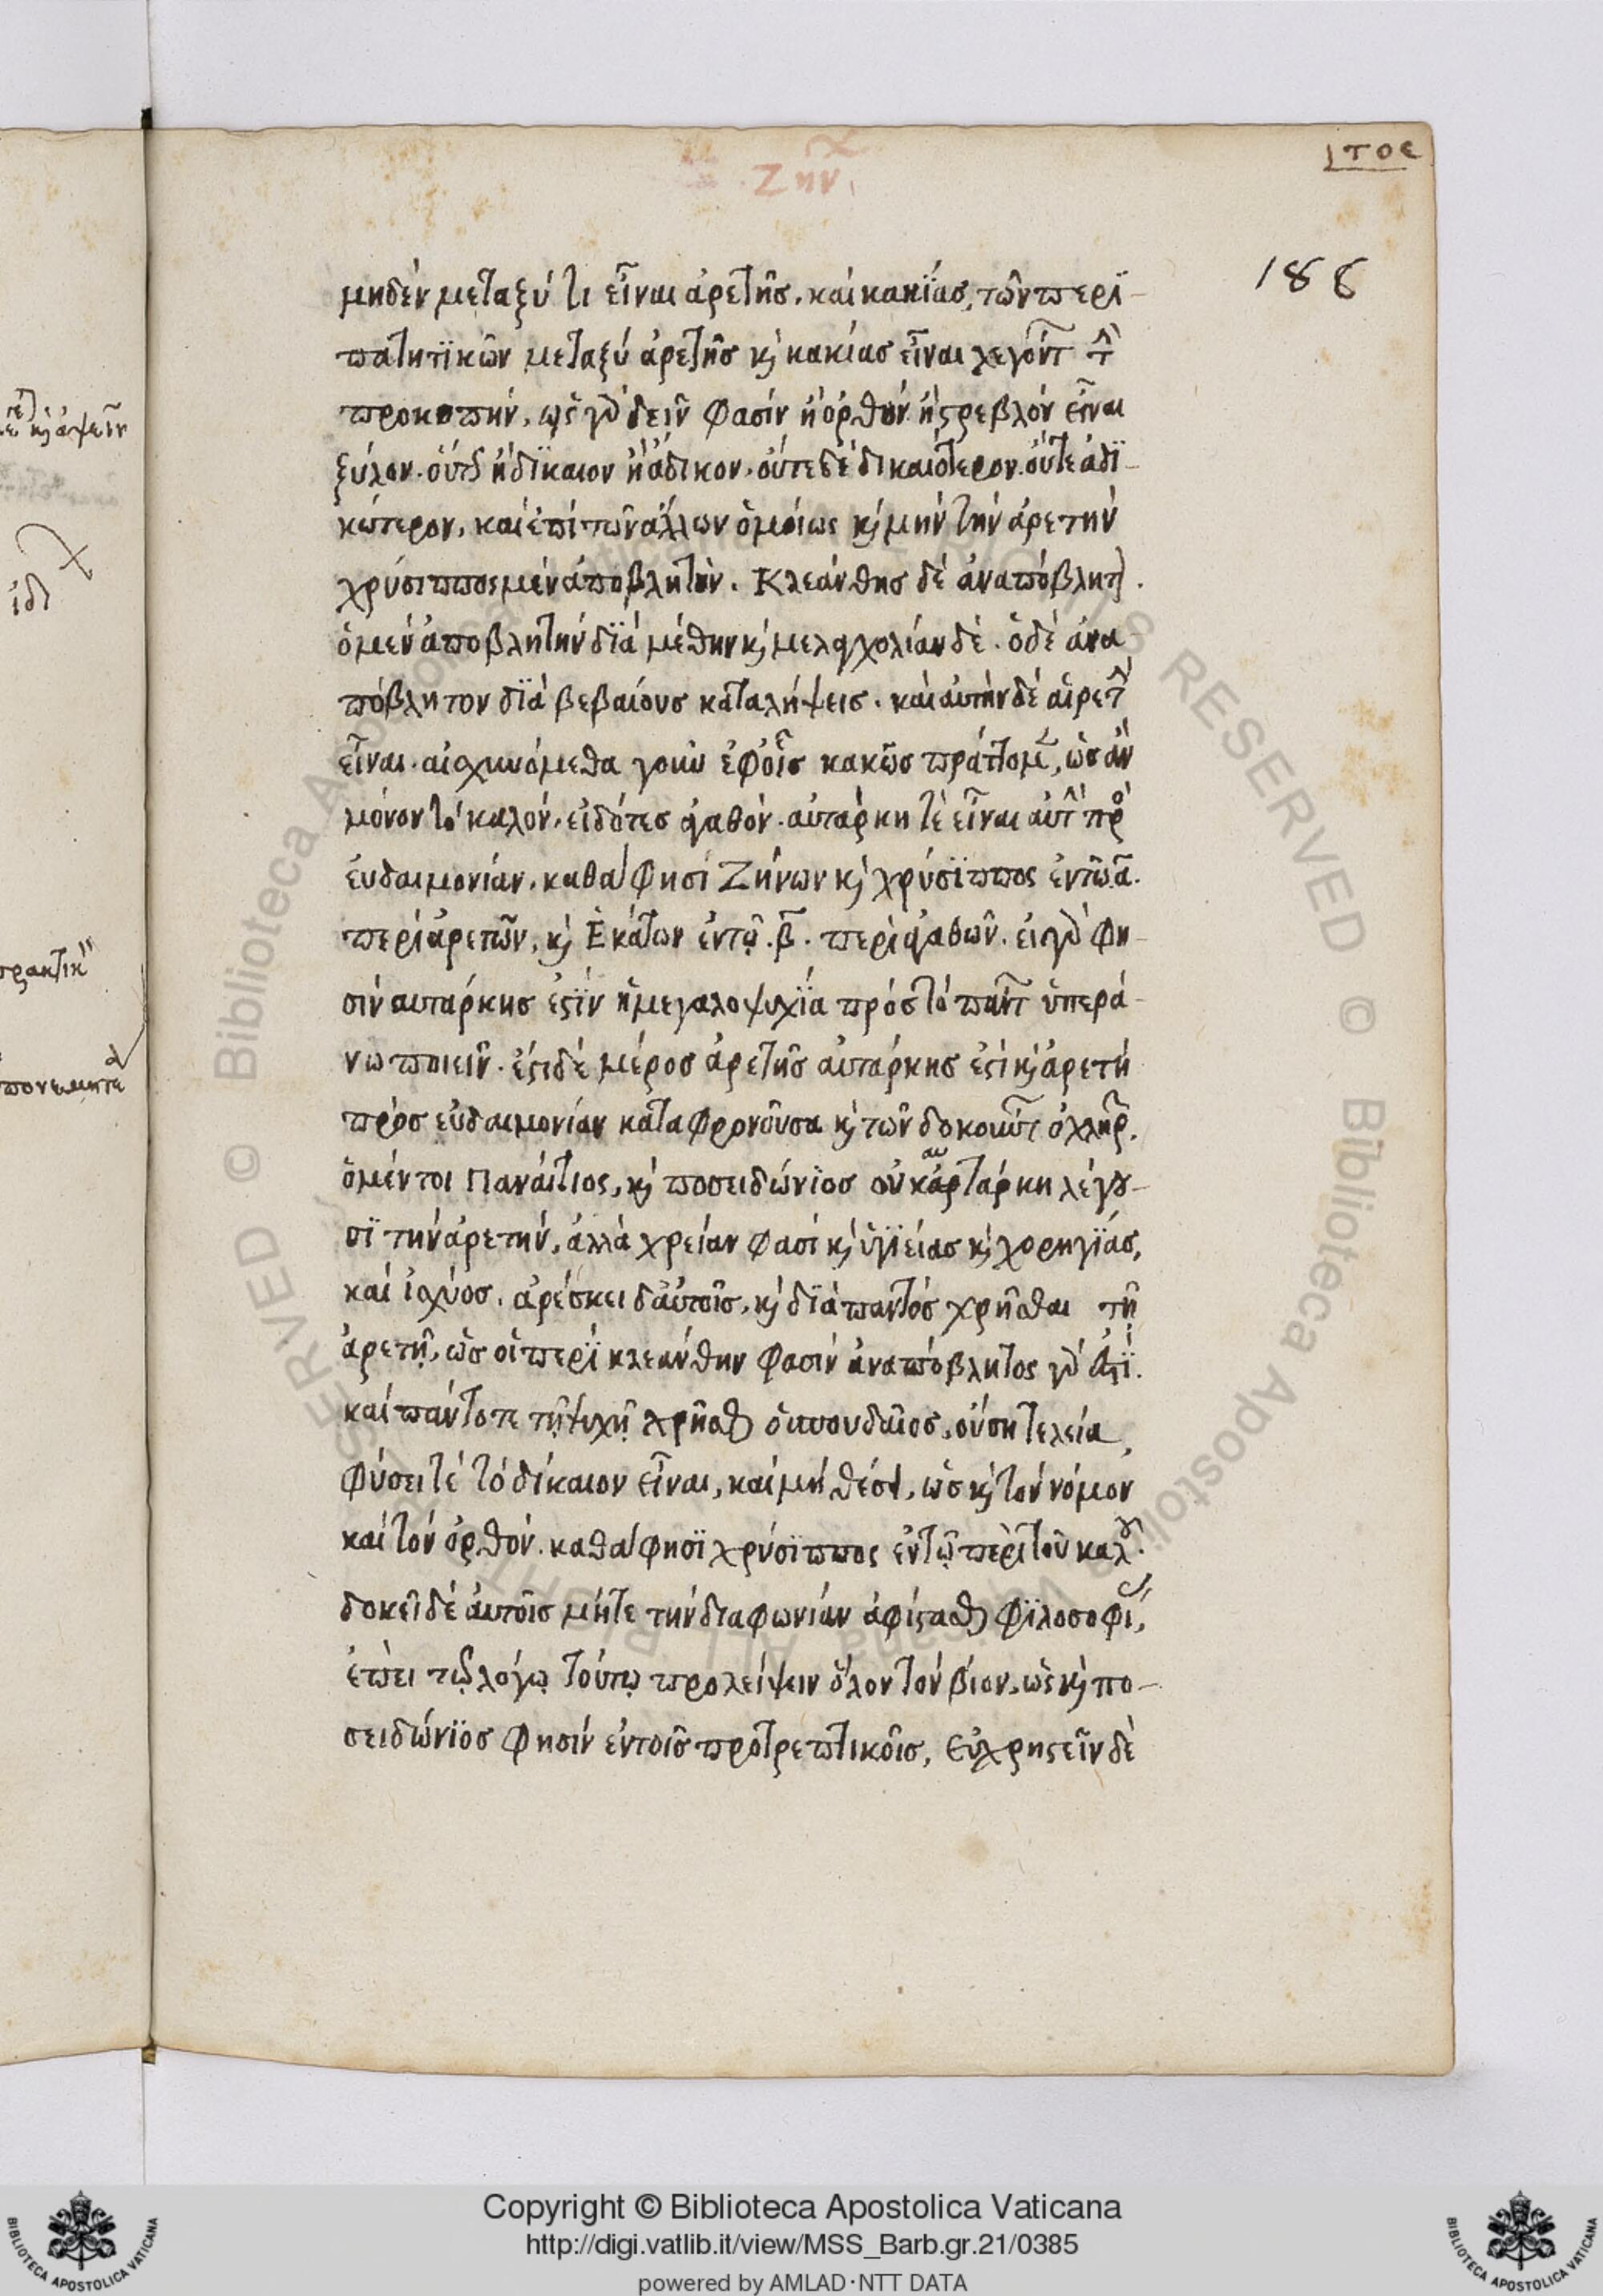 Ζήν
τοε
186
μηδὲν μεταξύ τι εἶναι ἀρετῆς, καὶ κακίας, τῶν περι-
πατητικῶν μεταξὺ ἀρετῆς κ̀ κακίας εἶναι λεγόντ τ̀
προκοπήν, ὡς γὰρ δεῖν φασὶν ἢ ὀρθὸν ἢ στρεβλὸν εἶναι
ξύλον. οὕτως ἢ δίκαιον ἢ ἄδικον. οὔτε δὲ δικαιότερον. οὔτε ἀδι-
κώτερον, καὶ ἐπὶ τῶν ἄλλων ὁμοίως κ̀ μὴν τὴν ἀρετὴν
χρύσιππος μὲν ἀποβλητὴν. Κλεάνθης δὲ ἀναπόβλητ.
ὁ μὲν ἀποβλητὴν διὰ μέθην κ̀ μελαγχολίαν δὲ. ὁ δὲ ἀνα-
πόβλητον διὰ βεβαίους καταλήψεις. καὶ αὐτὴν δὲ αἱρετ̀
εἶναι. αἰσχυνόμεθα γοῦν ἐφ' οἷς κακῶς πράττομ, ὡς ἂν
μόνον τὸ καλὸν, εἰδότες ἀγαθόν. αὐτάρκη τὲ εἶναι αὐτ̀ πρ
ἐυδαιμονίαν. καθά φησι Ζήνων κ̀ χρύσιππος ἐν τῷ ᾱ.
περὶ ἀρετῶν, κ̀ Ἑκάτων ἐν τῷ .β. περὶ ἀγαθῶν. εἰ γὰρ φη-
σὶν αυτάρκης ἐστὶν ἡ μεγαλοψυχία πρὸς τὸ πάντ ὑπερά-
νω ποιεῖν. ἔστι δὲ μέρος ἀρετῆς αὐτάρκης ἐστὶ κ̀ ἀρετὴ
πρὸς εὐδαιμονίαν καταφρονοῦσα κ̀ τῶν δοκούντ ὀχληρ.
ὁ μέντοι Παναίτιος, κ̀ ποσειδώνιος οὐκ ἀρτάρκη λέγου-
σι τὴν ἀρετήν, ἀλλὰ χρείαν φασὶ κ̀ ὑγιείας κ̀ χορηγίας,
καὶ ἰσχύος. ἀρέσκει δ' αὐτοῖς, κ̀ διὰ παντὸς χρῆσθαι τῇ
ἀρετῇ, ὡς οἱ περὶ κλεάνθην φασὶν ἀναπόβλητος γὰρ ἐστι.
καὶ πάντοτε τῇ ψυχῇ χρῆσθ ὁ σπουδαῖος, οὔσῃ τελεία,
φύσει τὲ τὸ δίκαιον εἶναι, καὶ μὴ θέσ, ὡς κ̀ τὸν νόμον
καὶ τὸν ὀρθὸν. καθά φησι χρύσιππος ἐν τῷ περὶ τοῦ καλοῦ.
δοκεῖ δὲ ἀυτοῖς μήτε τὴν διαφωνίαν ἀφίστασθ φιλοσοφί,
ἐπεὶ τῷ λόγῳ τούτῳ προλείψειν ὅλον τὸν βίον, ὡς κ̀ πο-
σειδώνιος φησὶν ἐν τοῖς προτρεπτικοῖς, εὐχρηστεῖν δὲ
ἰδ
πρακτικ
Copyright © Biblioteca Apostolica Vaticana
http://digi.vatlib.it/view/MSS_Barb.gr.21/0385
powered by AMLAD·NTT DATA